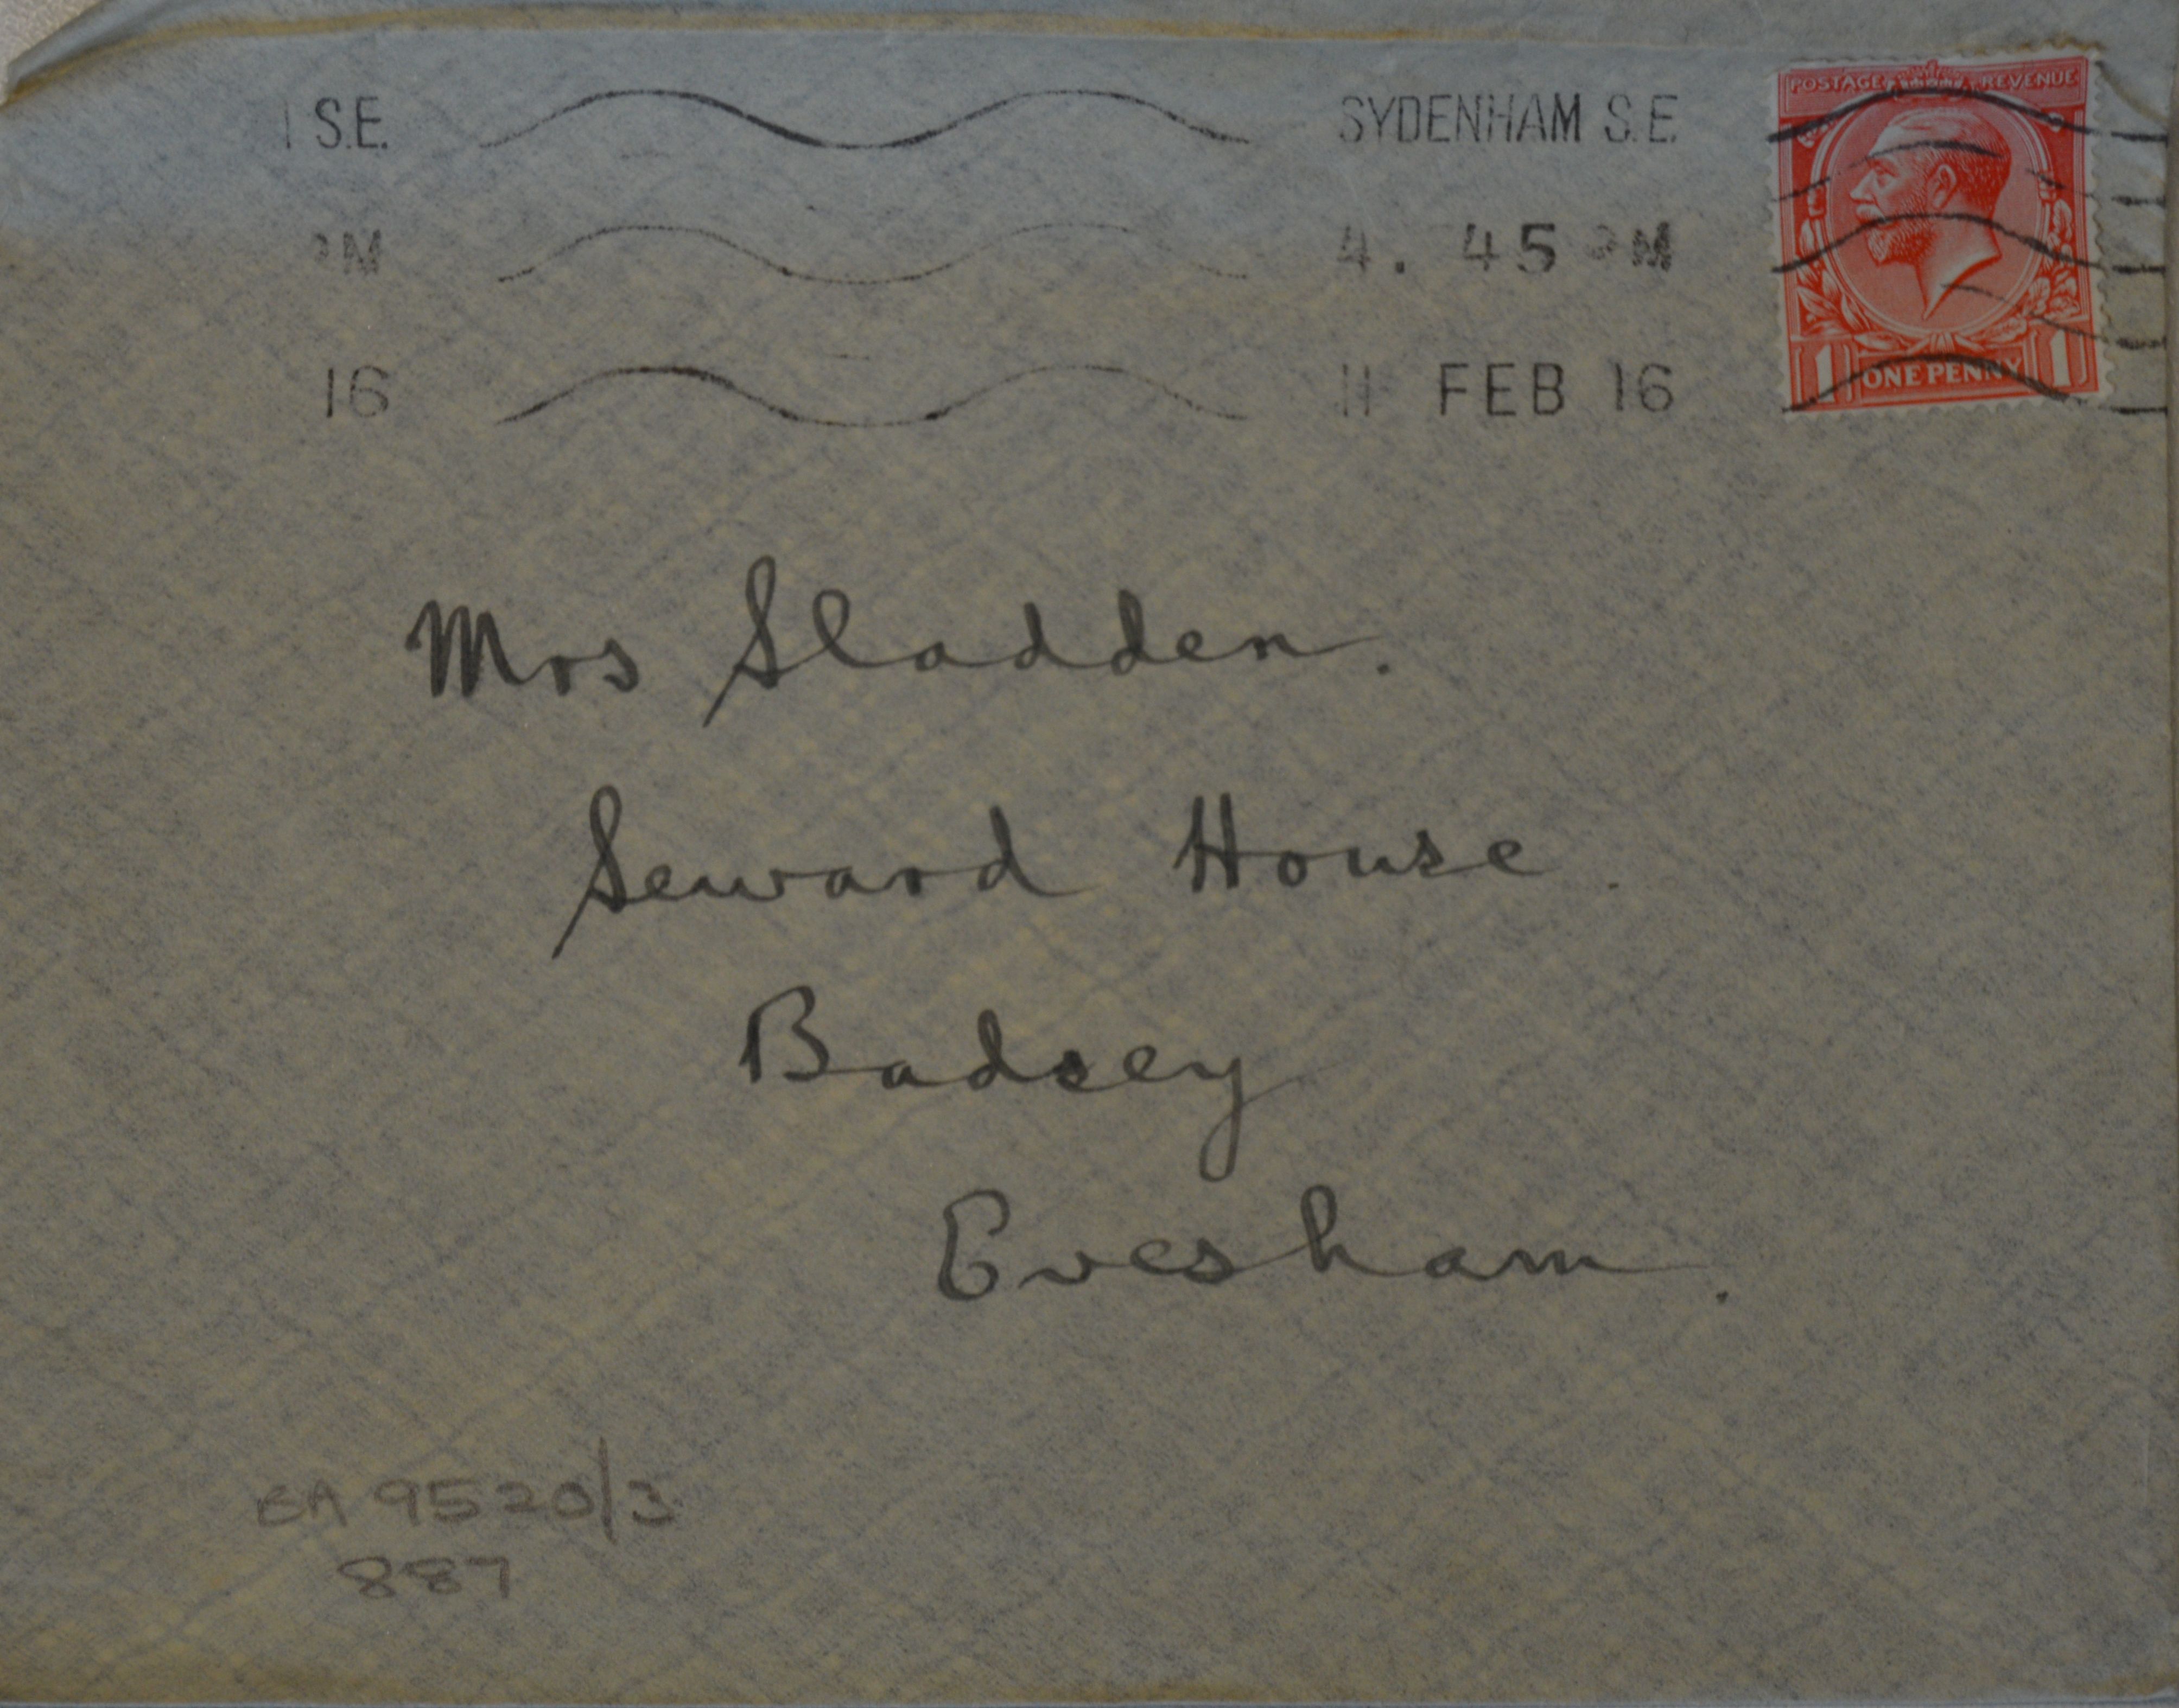 POSTAGE REVENUE
S.E. SYDENHAM S.E.
PM 4. 45 PM
16 11 FEB 16
1 ONE PENNY 1
Mrs Sladden.
Seward House.
Badsey
Evesham.
EA 9520/3
887